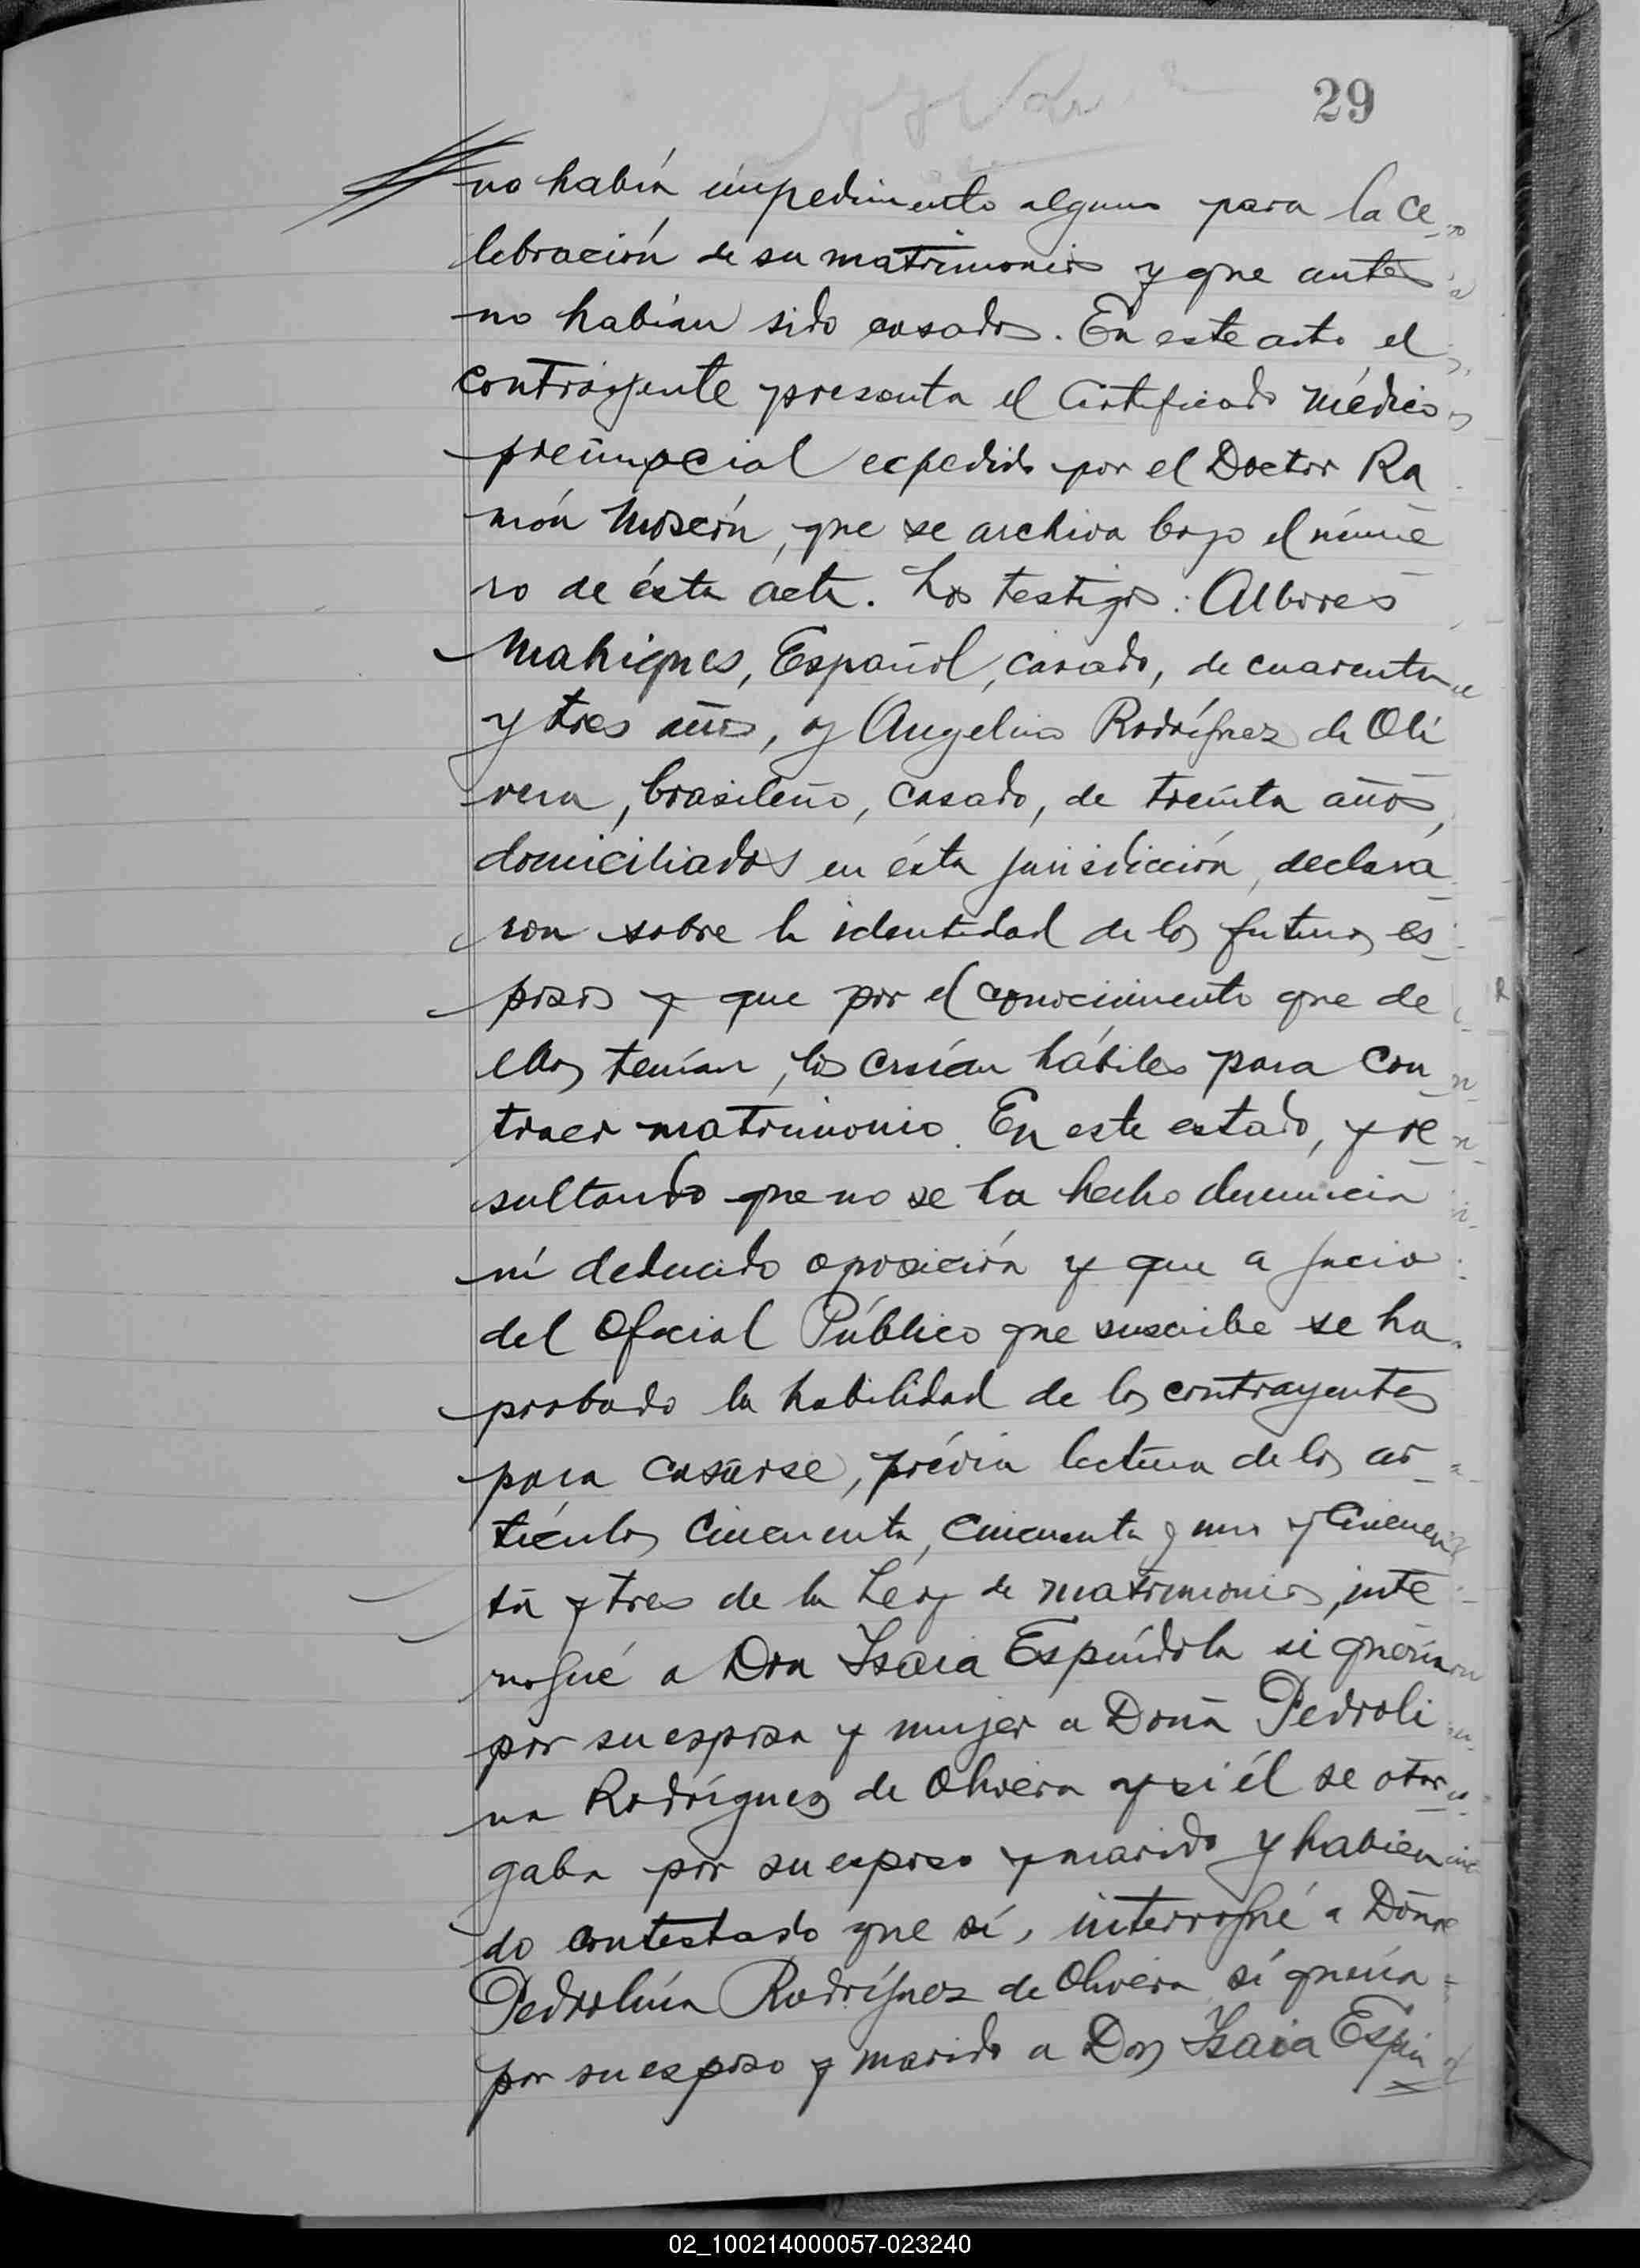 29
no había impedimento alguno para la ce
lebración de su matrimonio y que antes
no habían sido casados. En este acto el
contrayente presenta el Certificado médico
prenupcial expedido por el Doctor Ra
món que se archiva bajo el núme
ro de ésta acta. Los testigos: Albores
Mahiques, Español, casado, de cuarenta
y tres años, y Angelino Rodríguez de Oli
vera, brasileño, casado, de treinta años,
domiciliados en ésta jurisdicción, declara
ron sobre la identidad de los futuros es
posos y que por el conocimiento que de
ellos tenían, los creían hábiles para con
traer matrimonio. En este estado, y re
sultando que no se ha hecho denuncia
ni deducido oposición y que a jucio
del Oficial Público que suscribe se ha
probado la habilidad de los contrayentes
para casarse, prévia lectura de los ar
tículos cincuenta, cincuenta y uno y cincuen
ta y tres de la Ley de matrimonio, inte
rrogué a Don Isaia Espíndola si quería
por su esposa y mujer a Doña Pedroli
na Rodríguez de Olivera y si él se otor
gaba por su esposo y marido y habien
do contestado que sí, interrogué a Doña
Pedrolina Rodríguez de Olivera si quería
por su esposo y marido a Don Isaia Espín
02_100214000057-023240